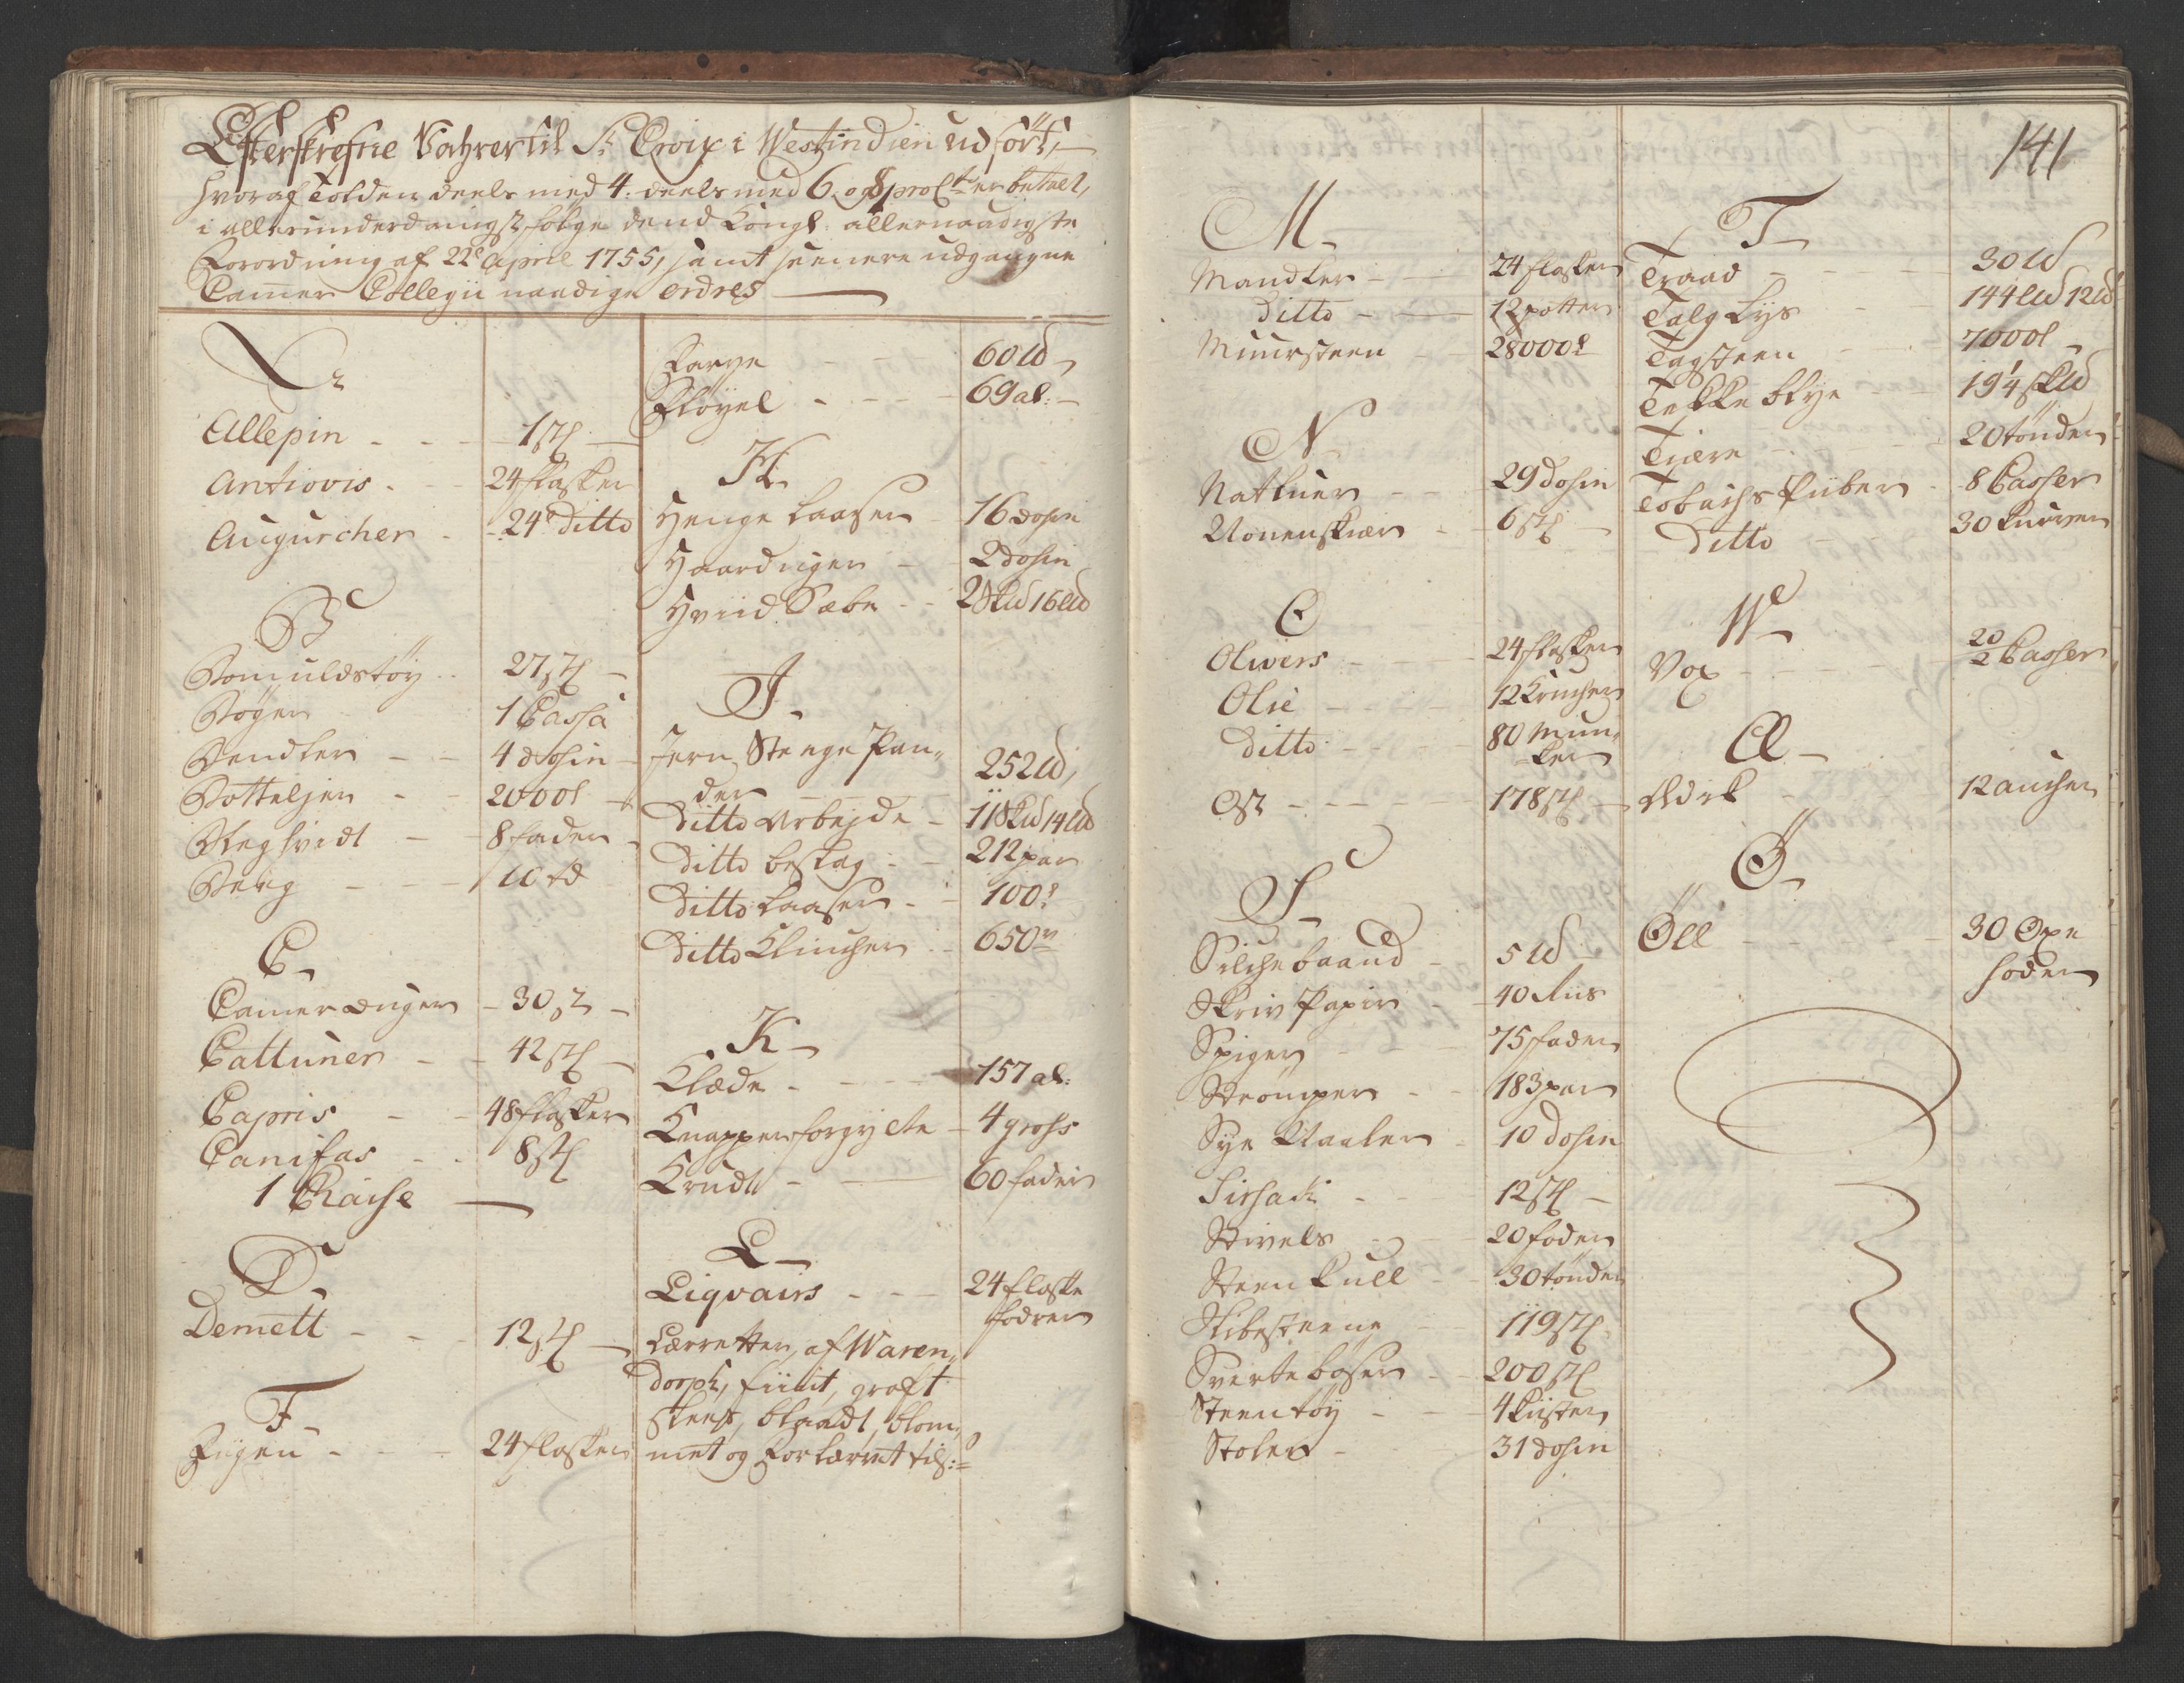 Efterskrefne Vahrer til St Croix i Westindien udført,
hvoraf Tolden deels med 4. deels med 6. og 8 proCto er betalt,
i allerunderdanigst følge dend Kongl: allernaadigste
Forordning af 22e April 1755, samt seenere udgangne
Camer Collegii naadige ordres
A
Allepin - - - 1 stk
Antiovis - - 24 flasker
Augurcher - - 24 ditto
B
Bomuldstøy - - 27 stk
Bøger 1 Cassa
Bendler - - 4 dosin
Botteljer - - 2000 s
Bleghvidt - - 8 fader
Beeg - - - 10 td
C
Camerduger - 30 st
Cattuner - - 42 stk
Capris - - 48 flasker
Canifas - - 8 stk
1 Chaise
D
Demett - - - 12 stk
F
Figen - - - 24 flasker
Farve - - 60 lb
Fløyel - - - 69 al:
H
Henge Laaser - 16 dosin
Haarduger - - 2 dosin
Hviid Sæbe - - 2 Sklb 16 Llb
J
Jern Steege Pan-
der 252 lb,
Ditto Arbejde - 11 Sklb 14 Llb
Ditto beslag - - 212 par
Ditto Laaser - - 100 s
Ditto Klincher - - 650
K
Klæde - - - 157 al:
Knapper forgylte - 4 gross
Krudt - - 60 fader
L
Liqvairs - - - 24 flaske
fodrer
Lærretter, af Waren-
dorph, fiint, groft
bleegt, blaadt, blom-
met og Forlærret tils:
141
M
Mandler - - 24 flasker
Ditto - - 12 potter
Muursteen - 28000 s
N
Natluer - - 29 dosin
6 stk
O
Olivers - - - 24 flasker
Olie - - - 12 Krucher
Ditto - - - 80 Mun-
ker
Ost - - - - 178 stk
S
Silchebaand - 5 lb
Skriv Papir - - 40 Riis
Spiger - - - 75 fader
Strømper - - 183 par
Sye Naaler - 10 dosin
Sirsack - - 12 stk
Stivels - - 20 foder
Steen Kull - - 30 tønder
119 stk
Sverte boser - - 200 stk
Steentøy - - - 4 Kister
Stoler - 31 dosin
T
Traad - - - 30 lb
Talg Lys - 144 Llb 12 lb
Tagsteen - - 7000 s
Tekke blye - - 19 1/4 Sklb
Tiære - - - 20 tønder
Tobachs Piiber - 8 Casser
Ditto - 30 Kurver
W
Vox - - - 20/2 Casser
Æ
Ædik - 12 ancher
Ö
Öll - - - 30 Oxe
hoder